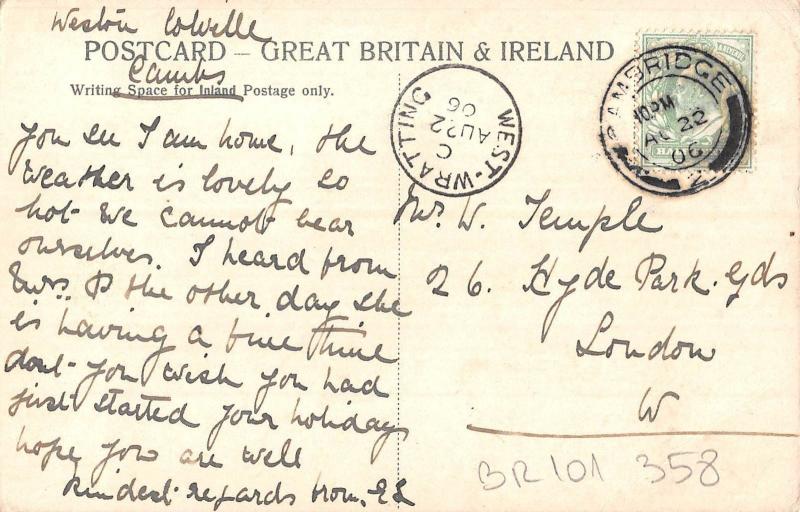 Weston Colville
Cambs
POSTCARD – GREAT BRITAIN & IRELAND
Writing Space for Inland Postage only.
You see I am home, the
weather is lovely so
hot we cannot bear
ourselves. I heard from
Mrs. P the other day she
is having a fine time
dont you wish you had
just started your holidays
hope you are well
Kindest regards from. ES
WEST-WRATTING
C
AU 22
06
CAMBRIDGE
10 PM
AU 22
06
2
HALF
Mr. W. Temple
26. Hyde Park. Gds
London
W
BR101 358